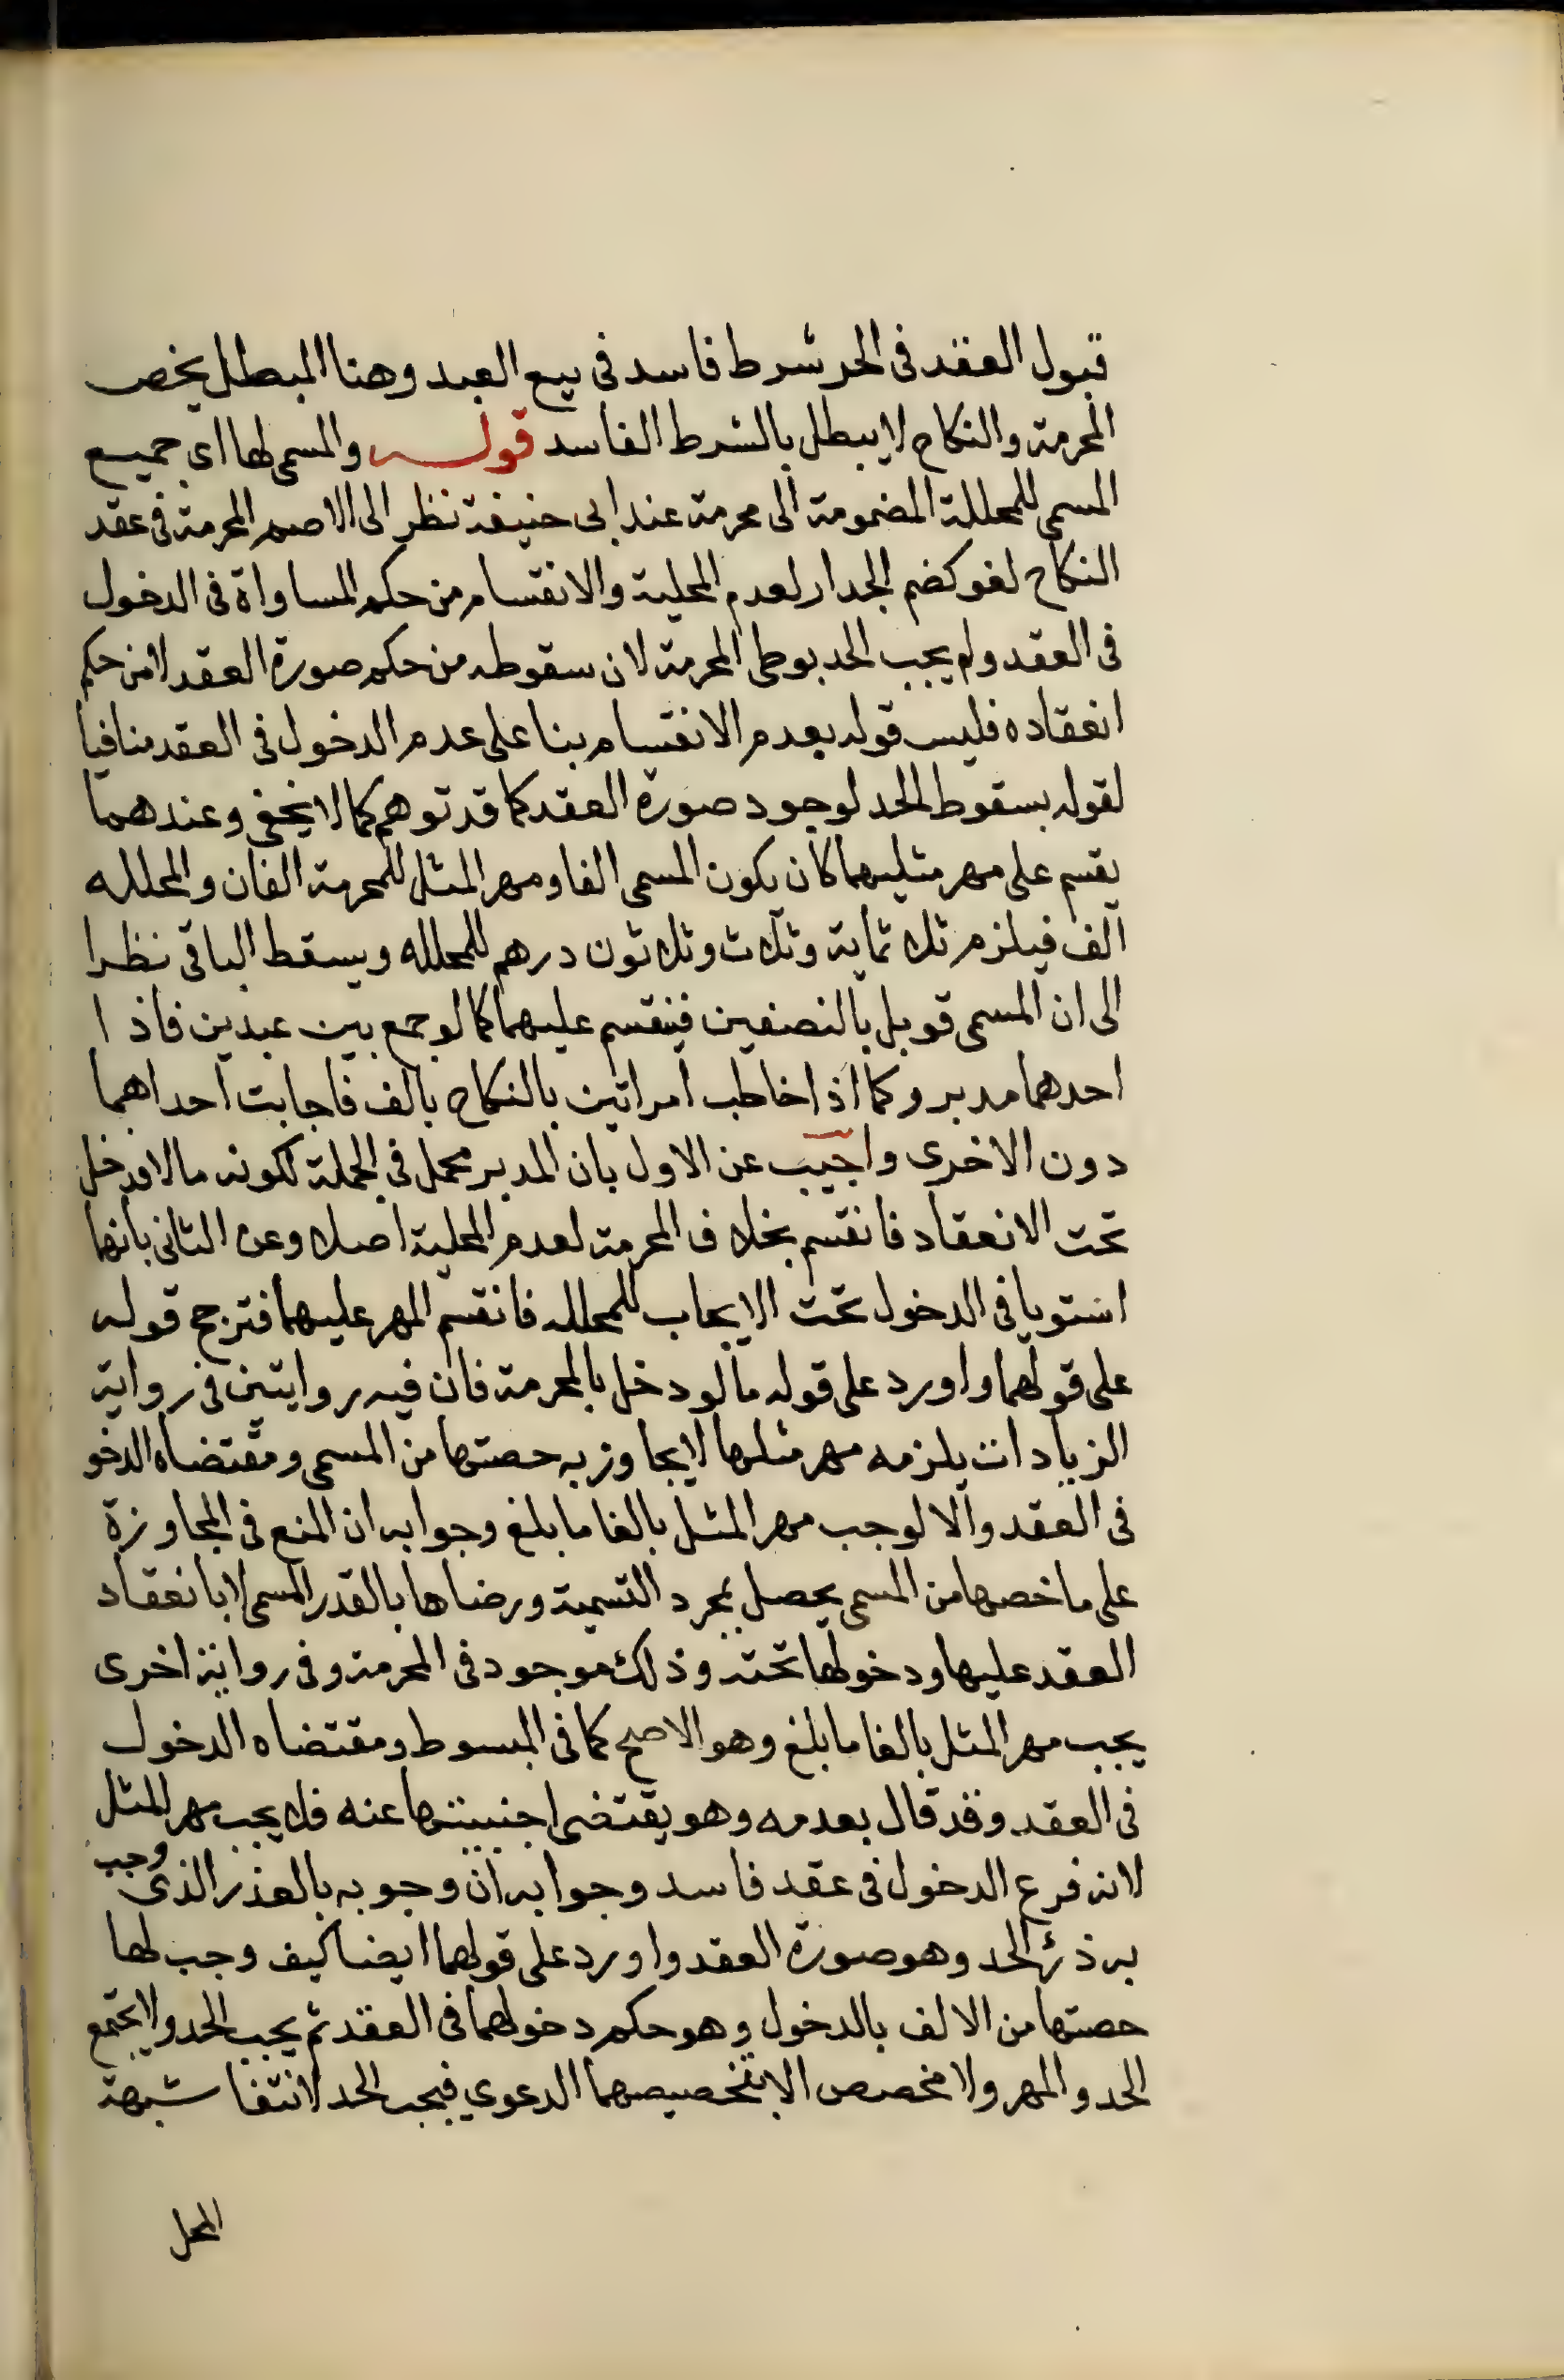 قبول العقد فى الحر شرط فاسد فى بيع العبد وهنا المبطل يخص
المحرمة والنكاح لا يبطل بالشرط الفاسد قوله والمسمى لها اى جميع
المسمى للمحللة المضمومة الى محرمة عند ابى حنيفة نظر الى الاصم المحرمة فى عقد
النكاح لغو كضم الجدار لعدم المحلية والانقسام من حكم المساواة فى الدخول
فى العقد ولم يجب الحد بوطى المحرمة لان سقوطه من حكم صورة العقد لا من حكم
انعقاده فليس قوله بعدم الانقسام بنا على عدم الدخول فى العقد منافيا
لقوله بسقوط الحد لوجود صورة العقد كما قد توهم كما لا يخفى وعندهما
يقسم على مهر مثليهما كان يكون المسمى الفا ومهر المثل للمحرمة الفان والمحلله
الف فيلزم ثلاثماية وثلاث وثلاثون درهم للمحلله ويسقط الباقى نظرا
الى ان المسمى قوبل بالنصفين فينقسم عليهما كما لو جمع بين عبدين فاذا
احدهما مدبر وكما اذا خاطب امراتين بالنكاح بالف فاجابت احداهما
دون الاخرى واجيب عن الاول بان المدبر محل فى الجملة لكونه مالا فدخل
تحت الانعقاد فانقسم بخلاف المحرمة لعدم المحلية اصلا وعن الثانى بانهما
استويا فى الدخول تحت الايجاب للمحلله فانقسم المهر عليهما فترجح قوله
على قولهما واورد على قوله ما لو دخل بالمحرمة فان فيه روايتين فى رواية
الزيادات يلزمه مهر مثلها لا يجاوز به حصتها من المسمى ومقتضاه الدخو
فى العقد والا لوجب مهر المثل بالغا ما بلغ وجوابه ان المنع فى المجاوزة
على ما خصها من المسمى يحصل بمجرد التسمية ورضاها بالقدر المسمى لا بانعقاد
العقد عليها ودخولها تحته وذلك موجود فى المحرمة وفى رواية اخرى
يجب مهر المثل بالغا ما بلغ وهو الاصح كما فى المبسوط ومقتضاه الدخول
فى العقد وقد قال بعدمه وهو يقتضى اجنبيتها عنه فلا يجب مهر المثل
لانه فرع الدخول فى عقد فاسد وجوابه ان وجوبه بالعذر الذى وجب
به درئ الحد وهو صورة العقد واورد على قولهما ايضا كيف وجب لها
حصتها من الالف بالدخول وهو حكم دخولهما فى العقد ثم يجب الحد ولا يجتمع
الحد والمهر ولا مخصص الا بتخصيصهما الدعوي فيجب الحد لانتفا شبهة
المحل